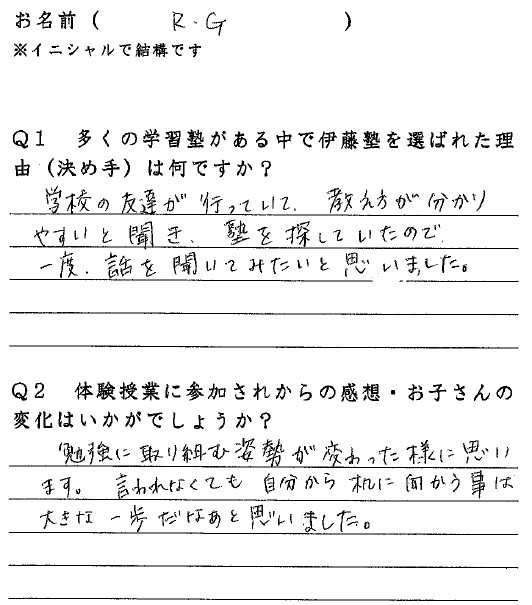 お名前( R.G )
※イニシャルで結構です
Q1 多くの学習塾がある中で伊藤塾を選ばれた理
由(決め手)は何ですか?
学校の友達が行っていて、教え方が分かり
やすいと聞き、塾を探していたので
一度、話を聞いてみたいと思いました。
Q2 体験授業に参加されからの感想・お子さんの
変化はいかがでしょうか?
勉強に取り組む姿勢が変わった様に思い
ます。言われなくても自分から机に向かう事は
大きな一歩だなあと思いました。